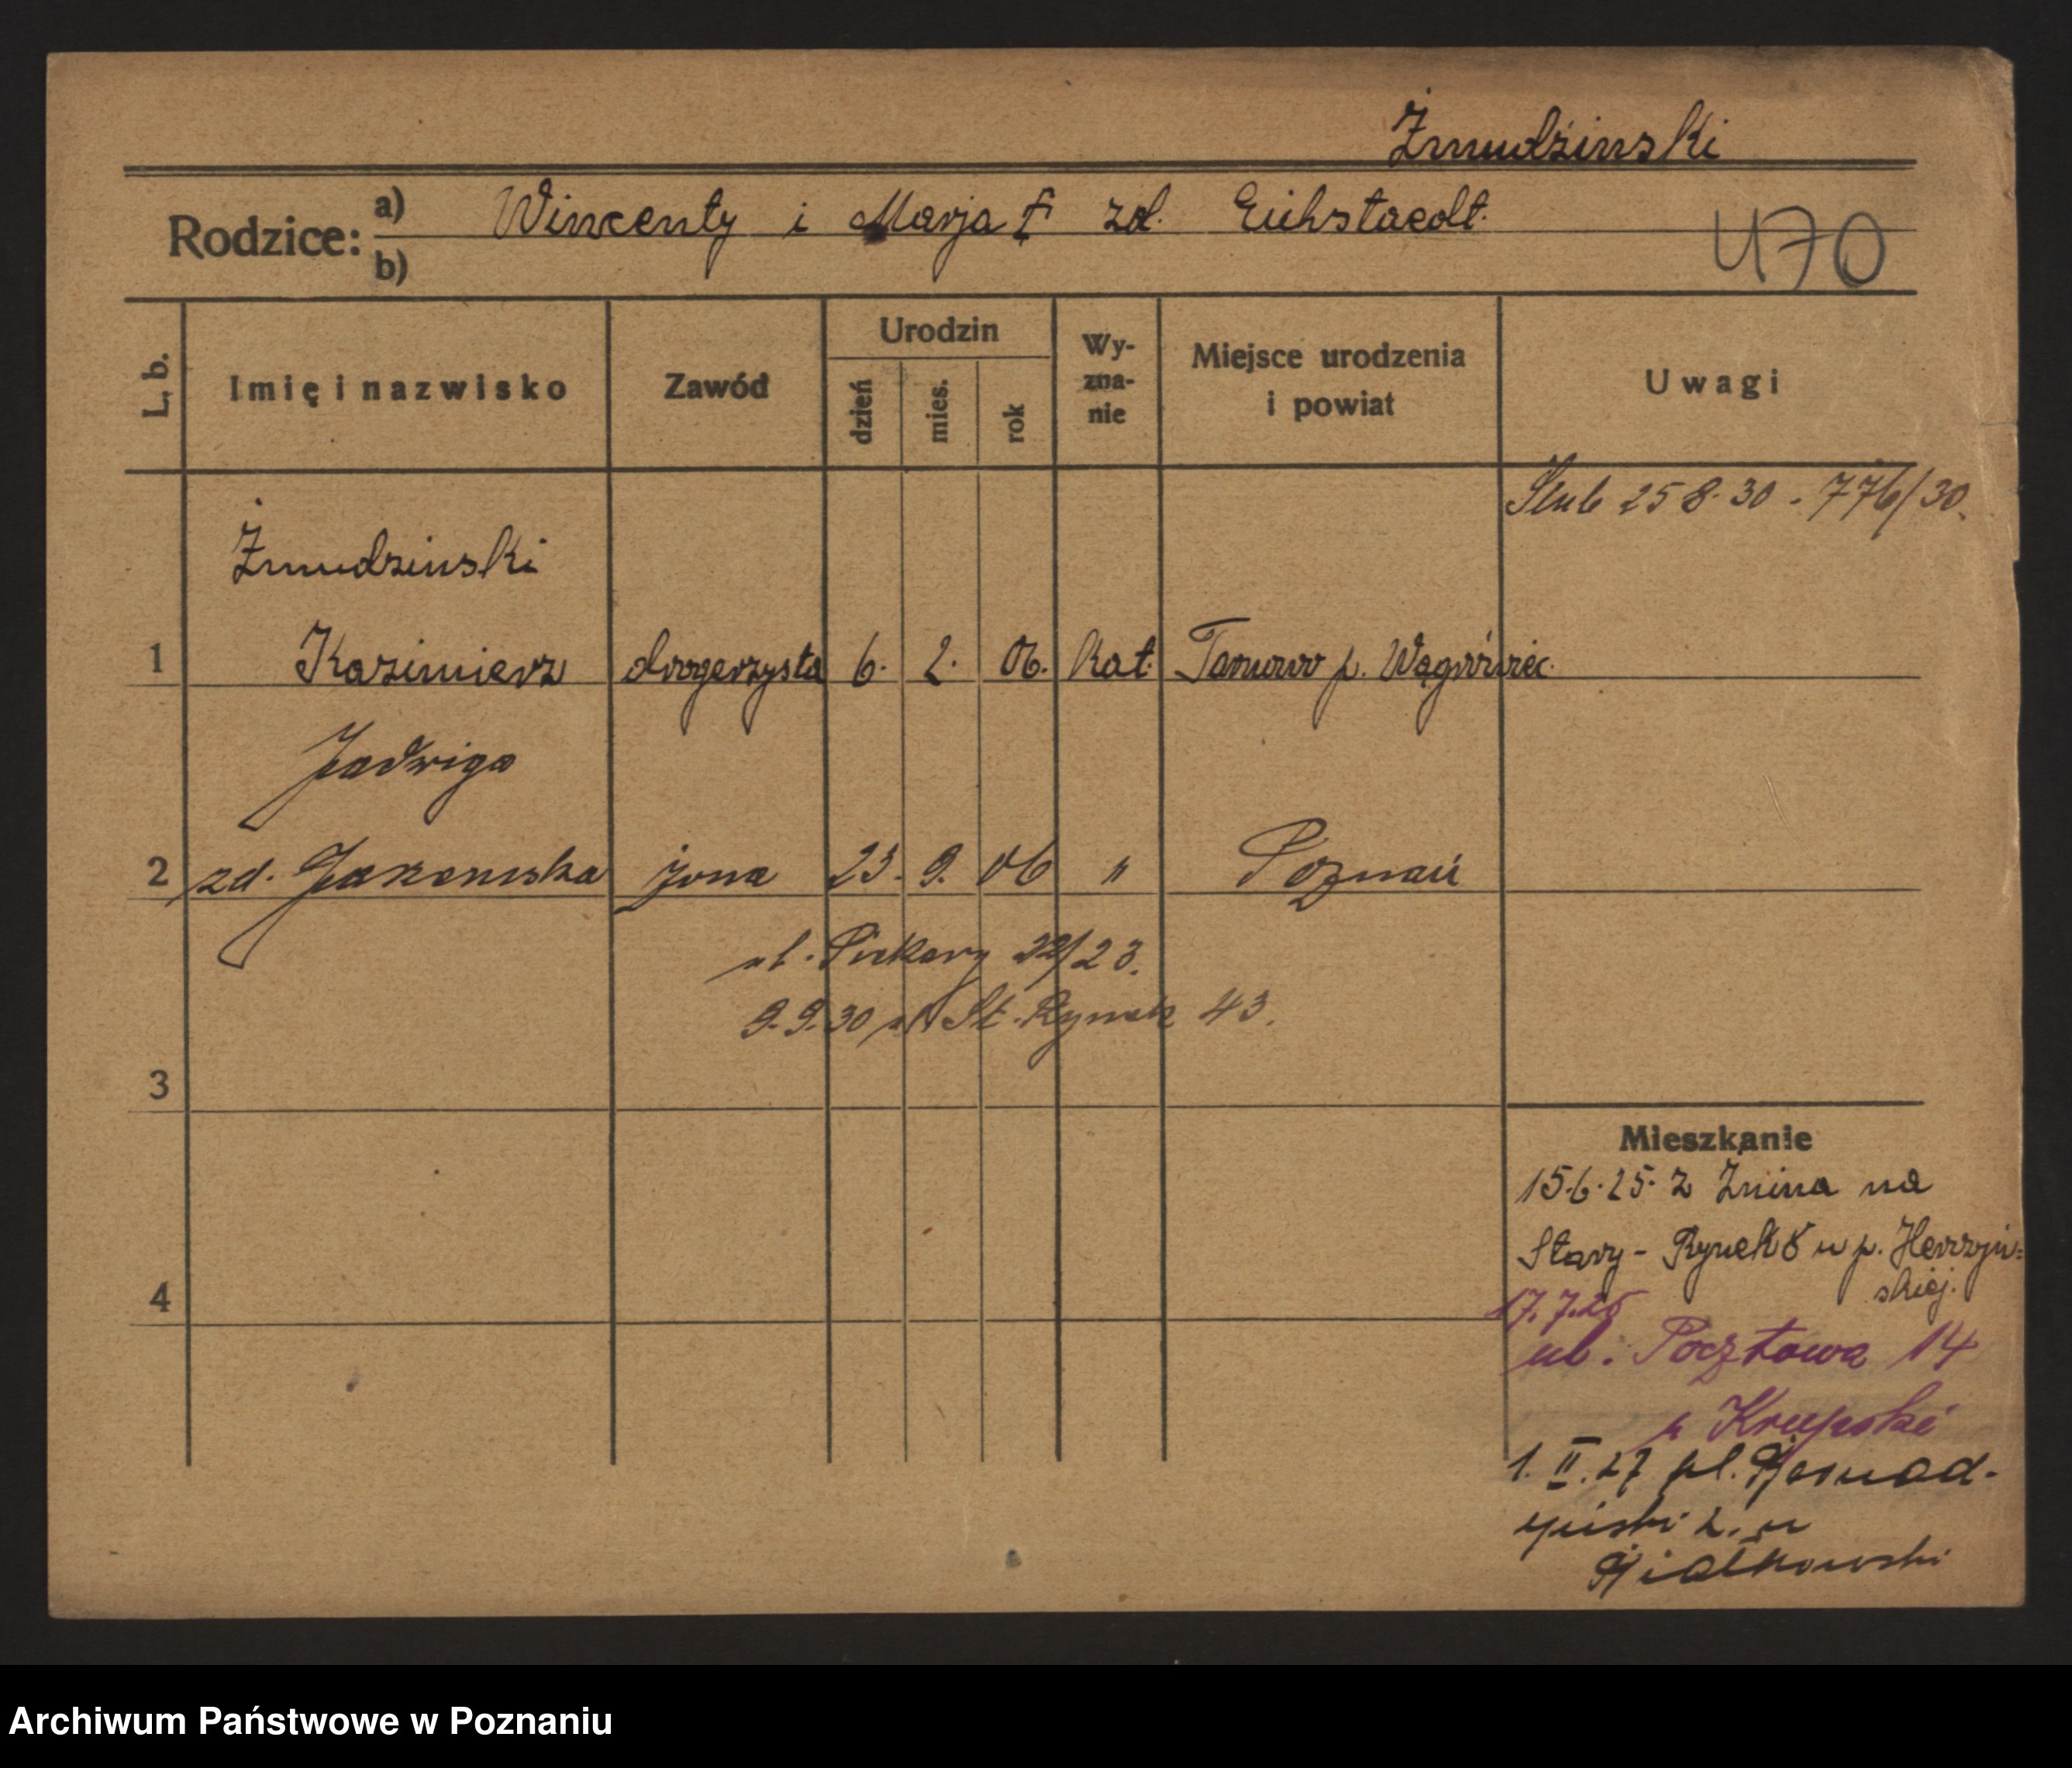 Żmudziński
Rodzice: a) Wincenty i Marja † zd. Eichstaedt.
b)
470
L. b.
Imię i nazwisko
Zawód
Urodzin
dzień
mies.
rok
Wy-
zna-
nie
Miejsce urodzenia
i powiat
Uwagi
Ślub 25 8. 30 - 776/30.
Żmudzinski
1 Kazimierz drogerzysta 6. 2. 06. Kat. p. Wągrówiec.
Jadwiga
2 zd. żona 23. 9. 06 " Poznań
ul. Piekary 22/23.
9.9.30 St. Rynek 43.
3
Mieszkanie
15.6.25. z Żnina na
Stary-Rynek 8 u p.
skiej.
4
17.7.25
ul. Pocztowa 14
u Krupski
1. II. 27 pl.
2. u